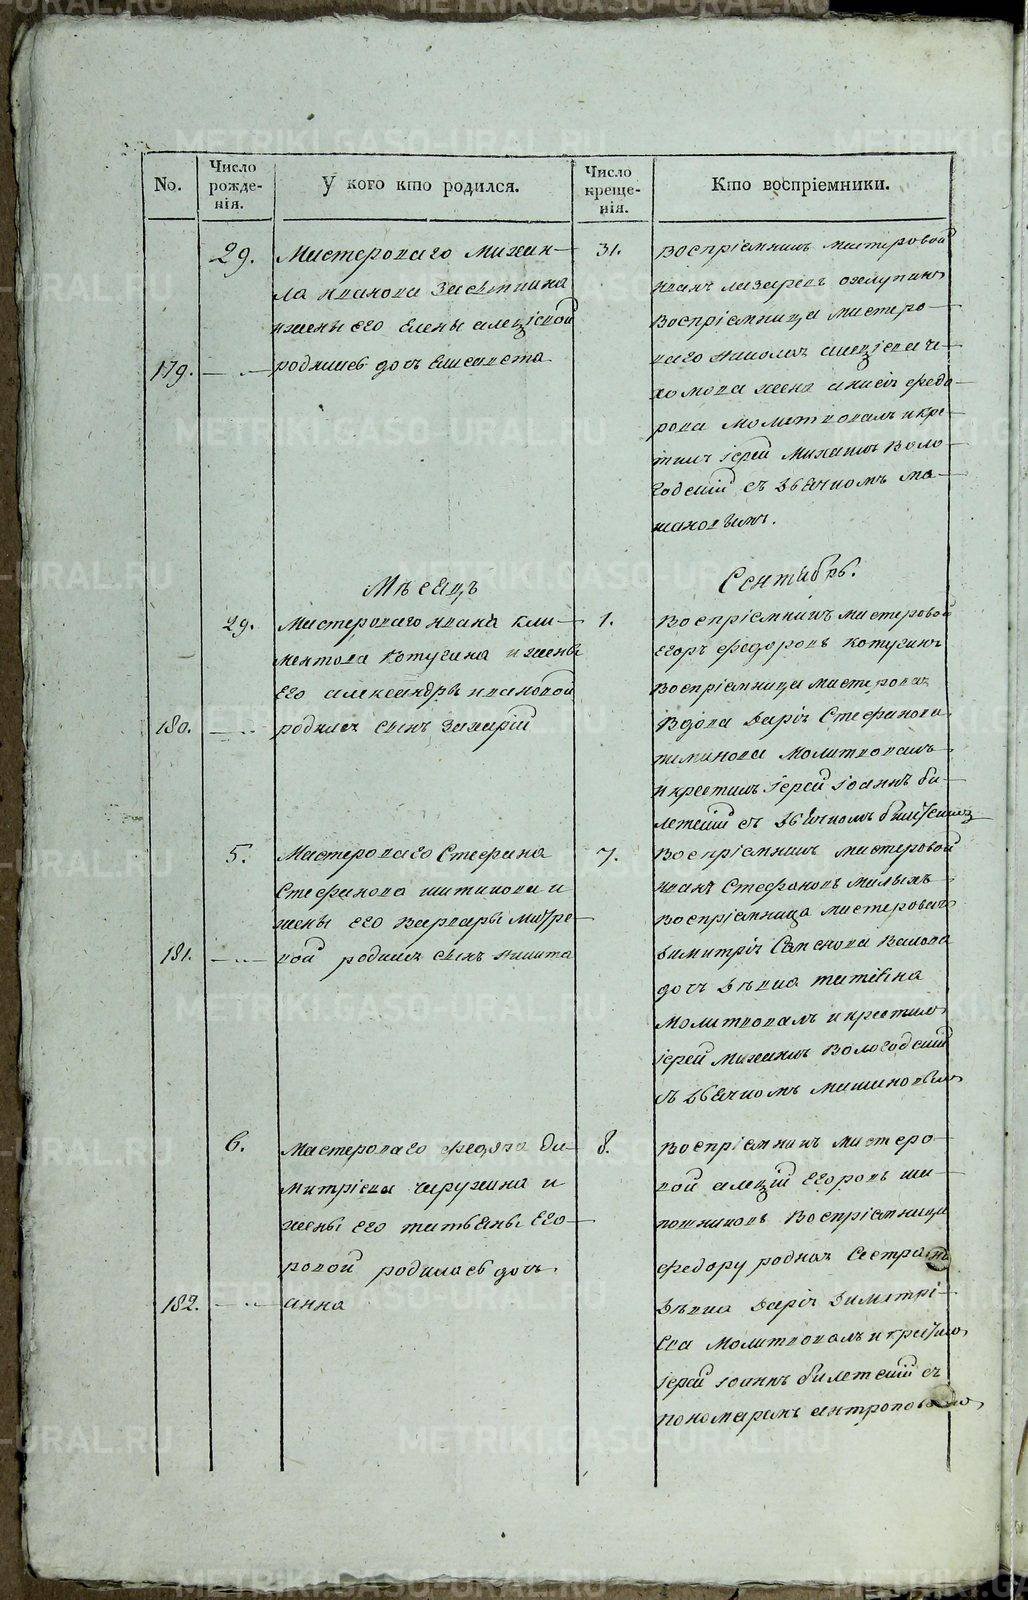 No.
Число рожде-нія.
У кого кто родился.
Число креще-нія.
Кто воспріемники.
179.
29.
Мастероваго Михаи-
ла Иванова Засыпкина
и жены его Елены Алеѯіевой
родилась дочь Елисавета
31.
Воспріемникъ мастеровой
Иванъ Лазаревъ
Воспріемница мастеро-
ваго Алеѯіева
жена Анисія Федо-
рова Молитвовалъ и кре-
тилъ іерей Михаилъ Воло-
годскій съ дьячкомъ Ма-
шановымъ.
Мѣсяцъ
Сентябрь.
180.
29.
Мастероваго Ивана Кли-
ментова Котугина и жены
его Александры Ивановой
родился сынъ Захарій
1.
Воспріемникъ мастеровой
Егоръ Федоровъ Котугинъ
Воспріемница мастерова
Вдова Дарія Стефанова
Молитвовалъ
и крестилъ іерей Іоаннъ Би-
летскій съ дьячкомъ
181.
5.
Мастероваго Стефана
Стефанова Шитикова и
жены его Варвары
вой родился сынъ Никита
7.
Воспріемникъ мастеровой
Иванъ Стефановъ Малыхъ
Воспріемница мастероваго
Димитрія
дочь дѣвка
Молитвовалъ и крестилъ
іерей Михаилъ Вологодскій
съ дьячкомъ Машановымъ
182.
6.
Мастероваго Федора Ди-
митріева Чирухина и
жены его Татьяны Его-
ровой родилась дочь
Анна
8.
Воспріемникъ мастеро-
вой Алеѯій Егоровъ Ши-
пошниковъ Воспріемница
Федору родная сестра
дѣвка Дарія Димитрі-
ева Молитвовалъ и крестилъ
іерей Іоаннъ Билетскій съ
пономаремъ Антроповымъ